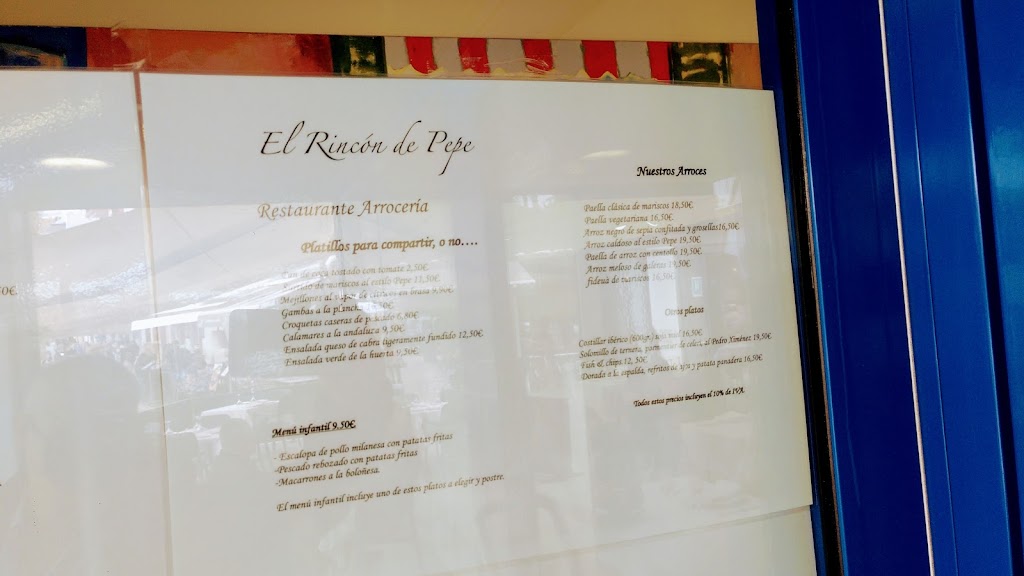 50€.
El Rincón de Pepe
Restaurante Arrocería
Platillos para compartir, o no….
Pan de coca tostado con tomate 2,50€
de mariscos al estilo Pepe 11,50€
Mejillones al vapor de en brasa
Gambas a la plancha
Croquetas caseras de 6,80€
Calamares a la andaluza 9,50€
Ensalada queso de cabra ligeramente fundido 12,50€
Ensalada verde de la huerta 9,50€
Menú infantil 9.50€
- Escalopa de pollo milanesa con patatas fritas
-Pescado rebozado con patatas fritas
-Macarrones a la boloñesa.
El menú infantil incluye uno de estos platos a elegir y postre.
Nuestros Arroces
Paella clásica de mariscos 18,50€
Paella vegetariana 16,50€
Arroz negro de sepia confitada y grosellas16,50€
Arroz caldoso al estilo Pepe 19,50€
Paella de arroz con centollo 19,50€
Arroz meloso de galeras 19,50€
fideuà de mariscos 16,50€
Otros platos
Costillar ibérico (600gr.) 16,50€
Solomillo de ternera, parmentier de celeri, al Pedro Ximénez 19,50€
Fish & chips 12,50€
Dorada a la espalda, refritos de ajo y patata panadera 16,50€
Todos estos precios incluyen el 10% de IVA.